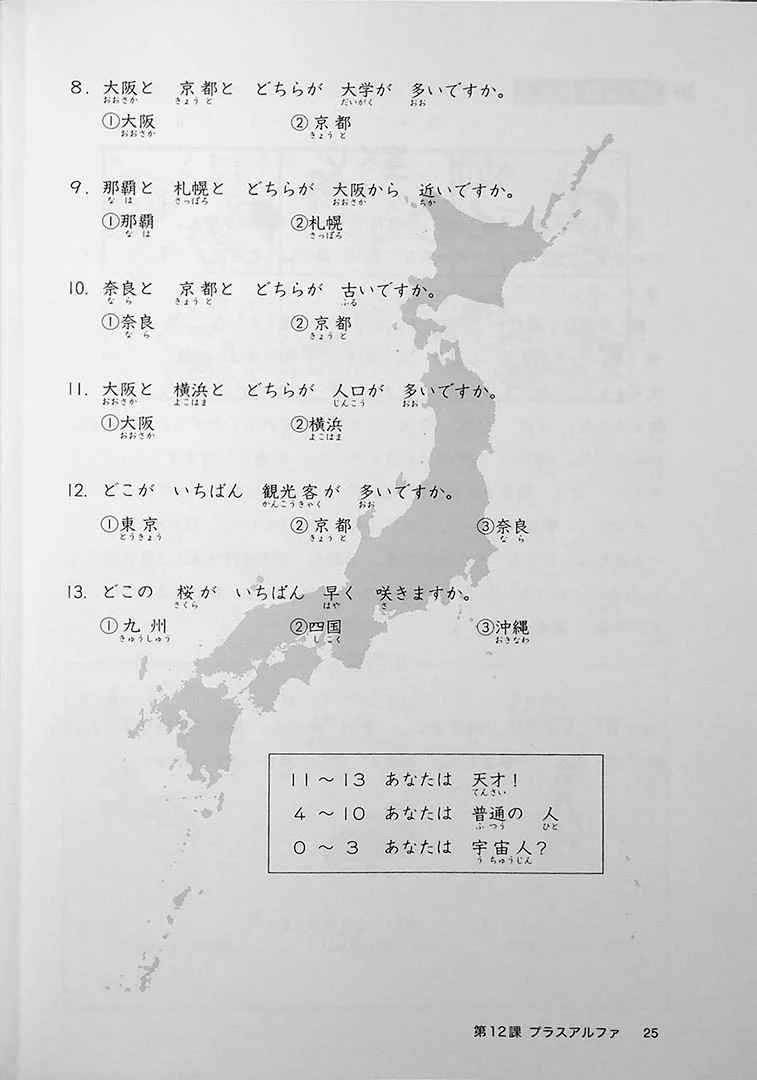 8. 大阪と 京都と どちらが 大学が 多いですか。
おおさか きょうと だいがく おお
①大阪 ②京都
おおさか きょうと
9. 那覇と 札幌と どちらが 大阪から 近いですか。
なは さっぽろ おおさか ちか
①那覇 ②札幌
なは さっぽろ
10. 奈良と 京都と どちらが 古いですか。
なら きょうと ふる
①奈良 ②京都
なら きょうと
11. 大阪と 横浜と どちらが 人口が 多いですか。
おおさか よこはま じんこう おお
①大阪 ②横浜
おおさか よこはま
12. どこが いちばん 観光客が 多いですか。
かんこうきゃく おお
①東京 ②京都 ③奈良
とうきょう きょうと なら
13. どこの 桜が いちばん 早く 咲きますか。
さくら はや さ
①九州 ②四国 ③沖縄
きゅうしゅう しこく おきなわ
11～13 あなたは 天才！
てんさい
4～10 あなたは 普通の 人
ふつう ひと
0～3 あなたは 宇宙人？
うちゅうじん
第12課 プラスアルファ 25